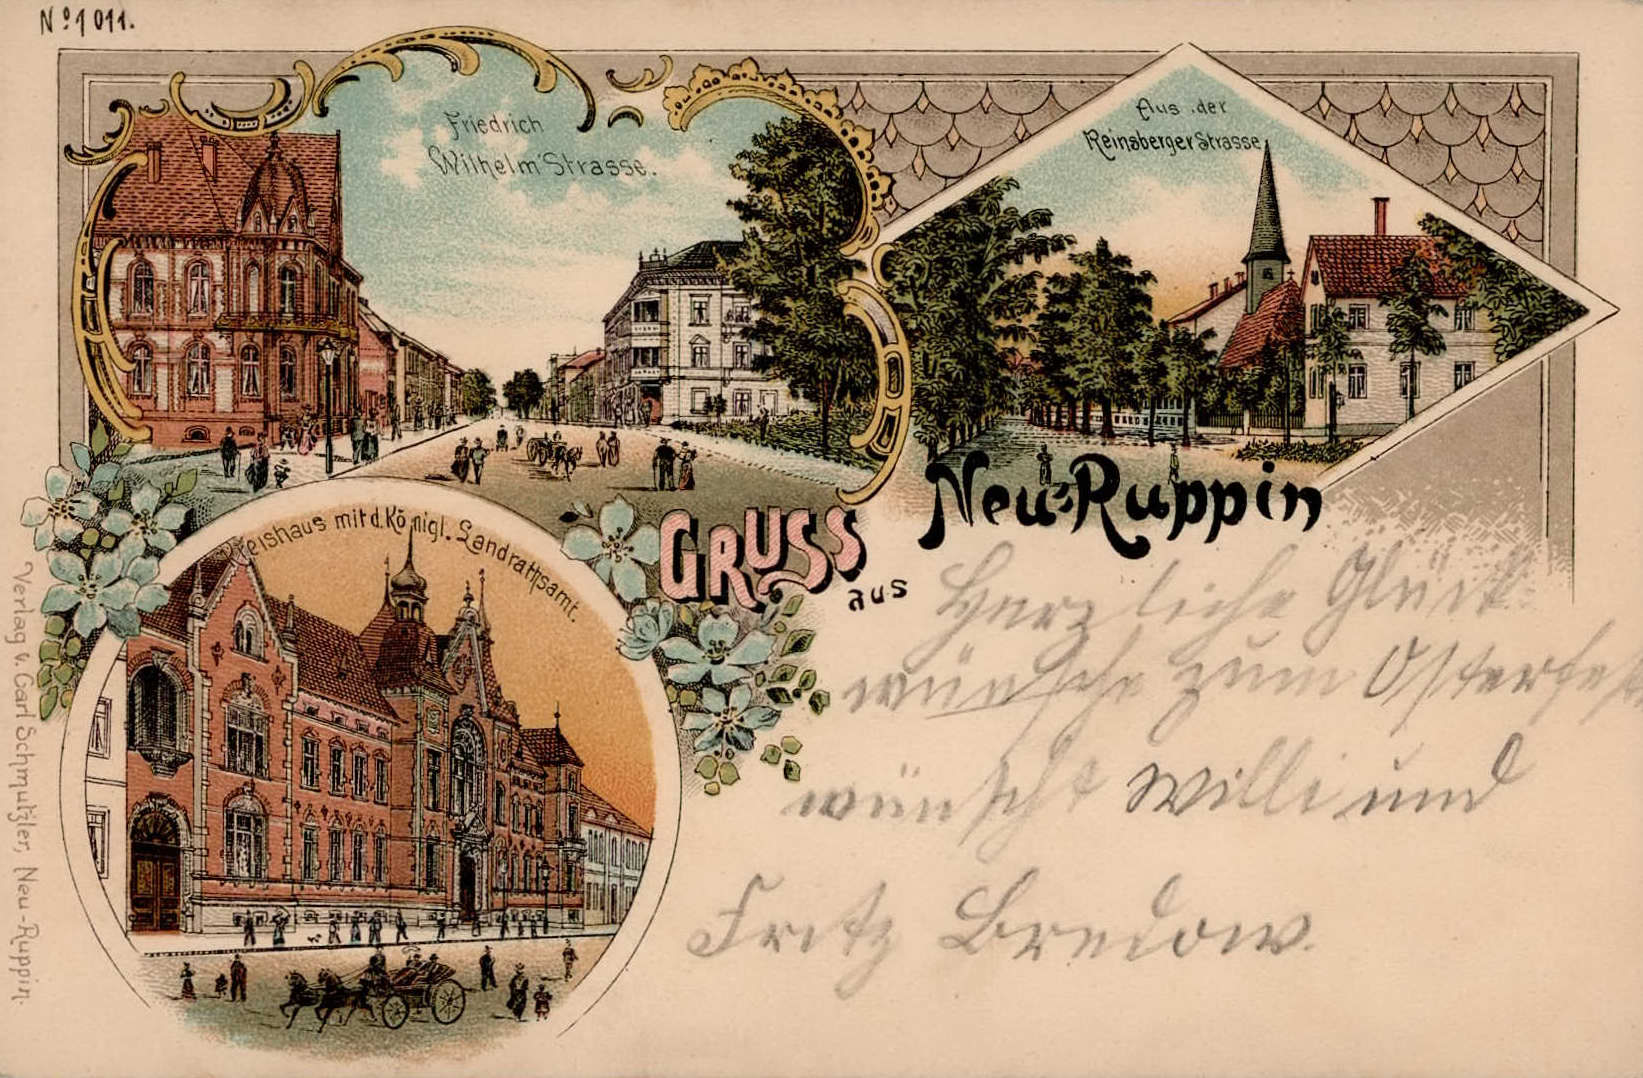 No 1011.
Friedrich
Wilhelm Strasse.
Aus der
Reinsberger Strasse
Kreishaus mit d. Königl. Landrathsamt.
GRUSS
aus
Neu-Ruppin
Herzliche Glück-
wünsche zum Osterfest
wünscht Willi und
Fritz Bredow.
Verlag v. Carl Schmutzler, Neu-Ruppin.